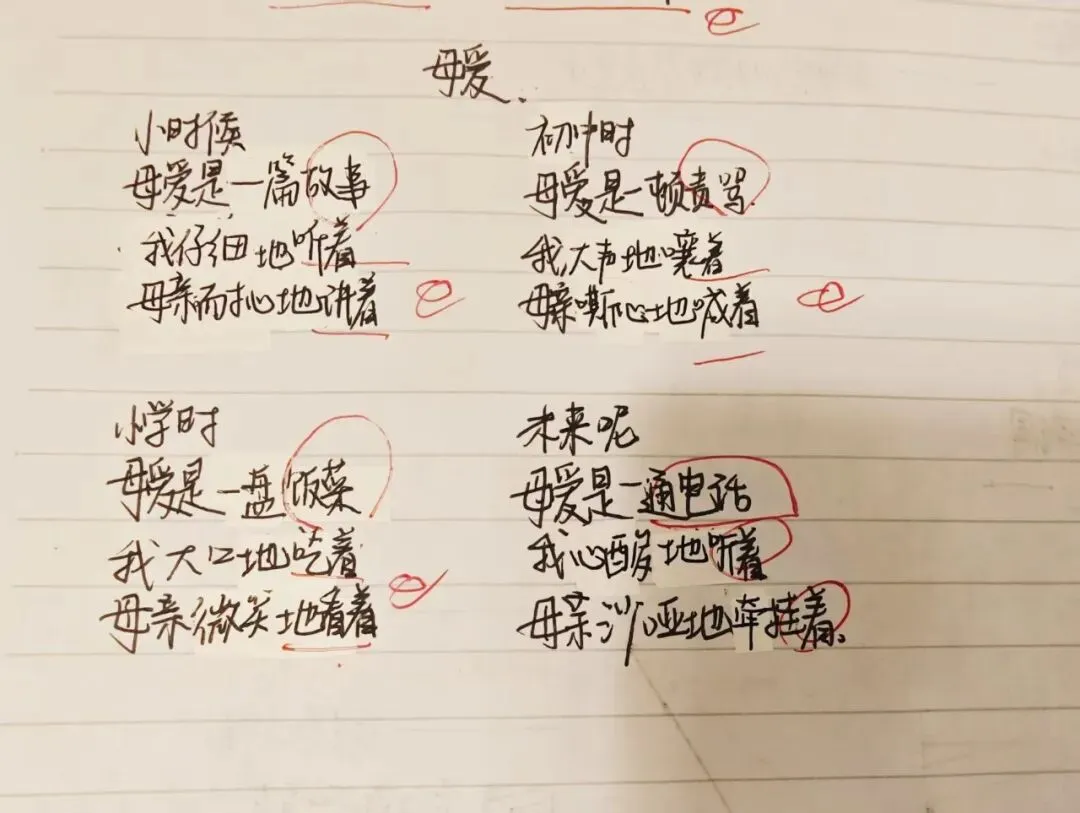 母爱.
小时候
母爱是一篇故事
我仔细地听着
母亲耐心地讲着
小学时
母爱是一盘饭菜
我大口地吃着
母亲微笑地看着
初中时
母爱是一顿责骂
我大声地嚷着
母亲嘶心地喊着
未来呢
母爱是一通电话
我心酸地听着
母亲沙哑地牵挂着.